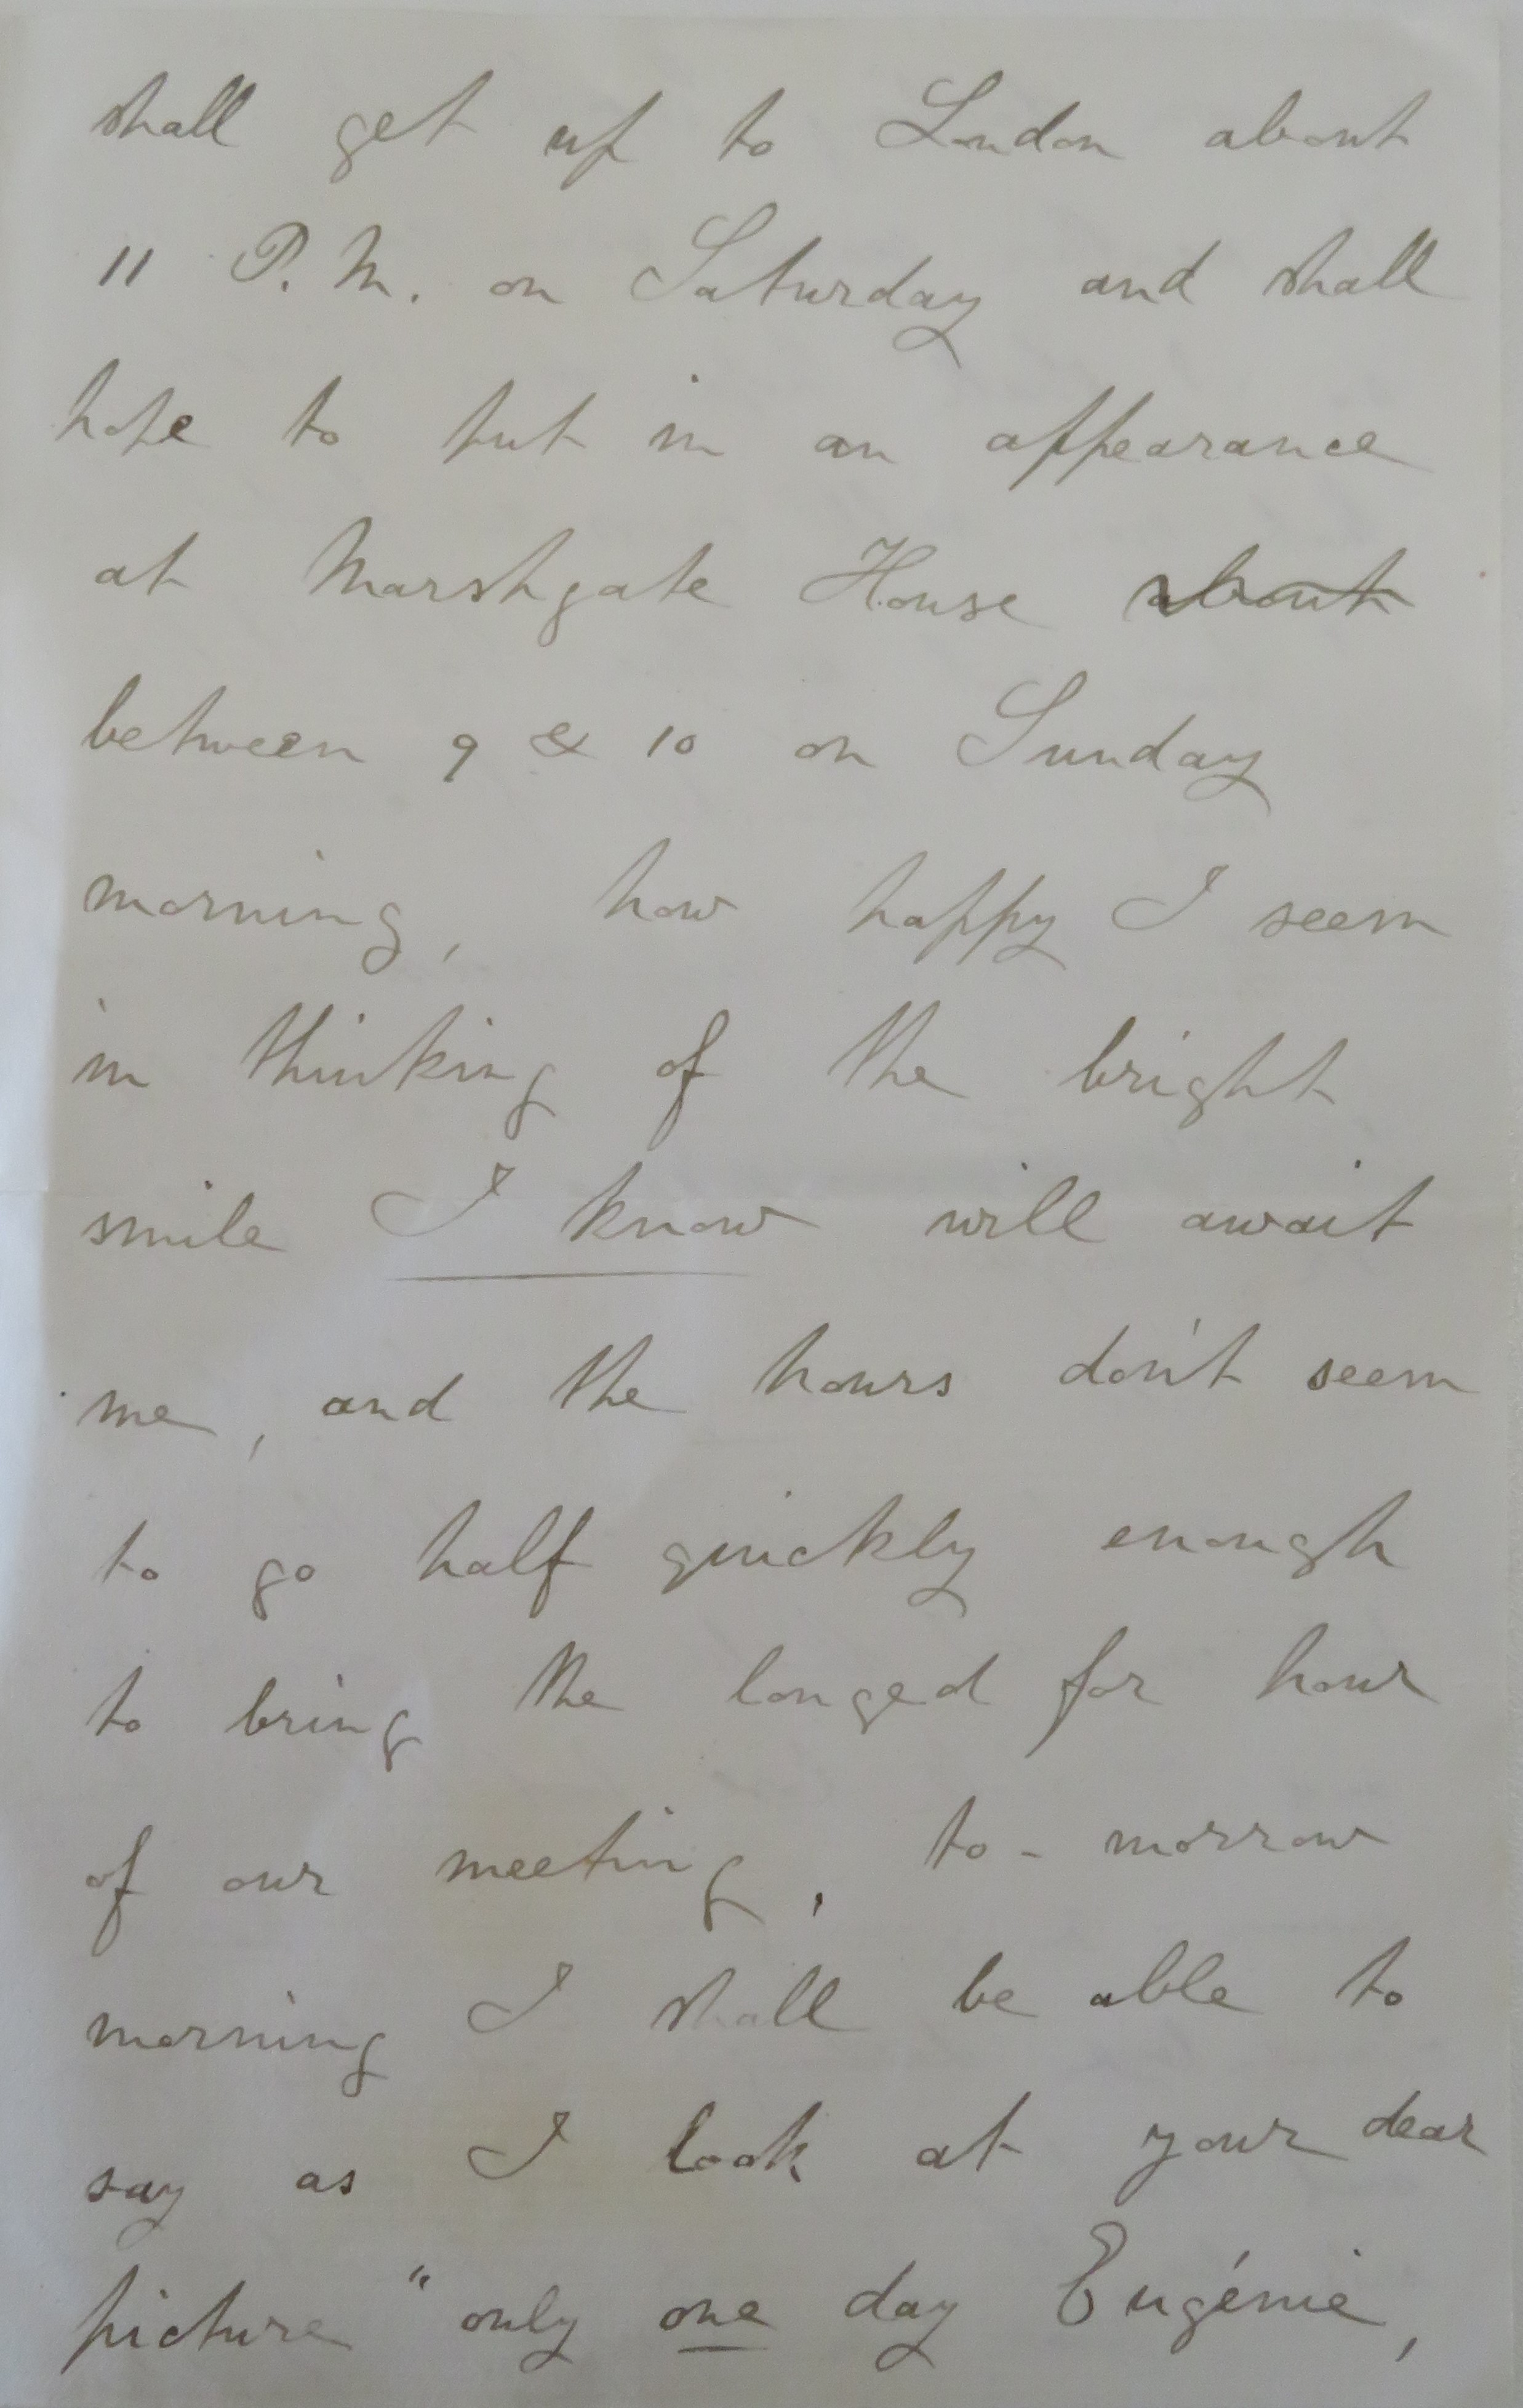 shall get up to London about
11 P.M. on Saturday and shall
hope to put in an appearance
at Marshgate House about
between 9 & 10 on Sunday
morning, how happy I seem
in thinking of the bright
smile I know will await
me, and the hours don't seem
to go half quickly enough
to bring the longed for hour
of our meeting, to-morrow
morning I shall be able to
say as I look at your dear
picture "only one day Eugénie,